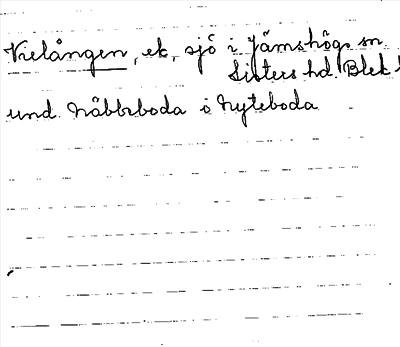 Vielången, ek, sjö i Jämshögs sn
Listers hd. Blek l
und. Näbbeboda o Nyteboda